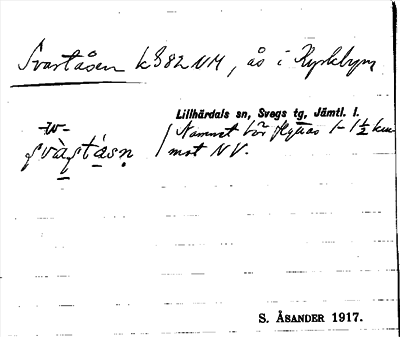 Svartåsen k 382 NM, ås i Kyrkbyn
Lillhärdals sn, Svegs tg, Jämtl. l.
-w-
svàrtásn
Namnet bör flyttas 1-1½ km
mot NV.
S. ÅSANDER 1917.